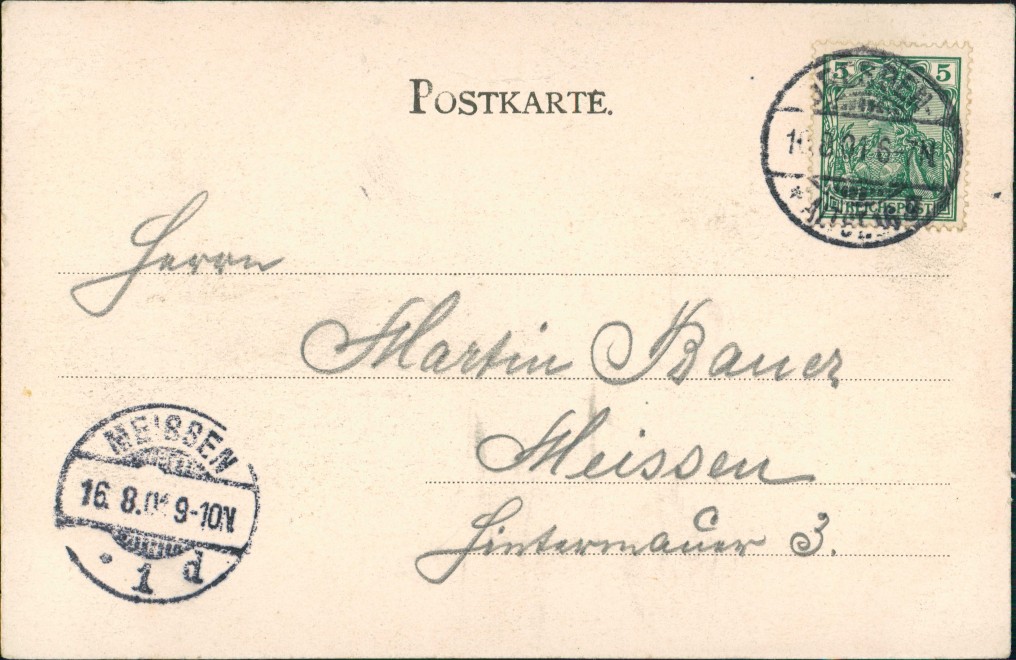 POSTKARTE.
5 5
8.01 6-7N
REICHSPOST
Herrn
Martin Bauer
Meissen
Hintermauer 3.
MEISSEN
16. 8.01 9-10N
* 1 d